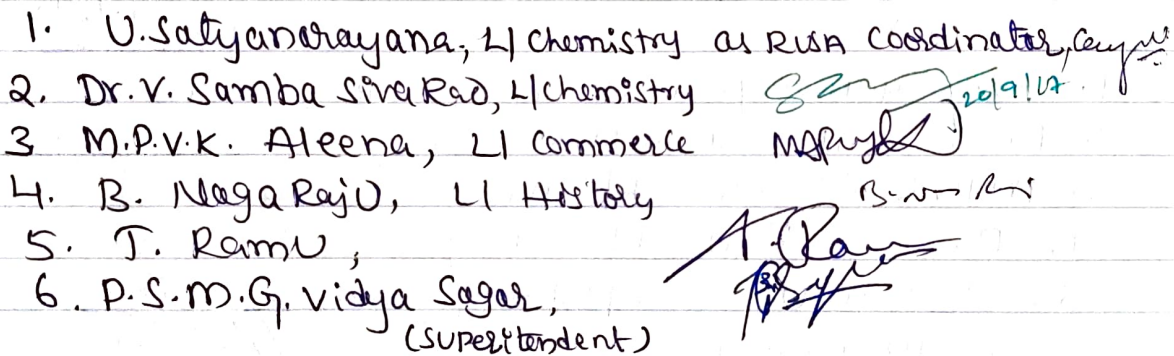 1. U. Satyanarayana, L/ Chemistry as RUSA Coordinator,
2. Dr. V. Samba Siva Rao, L/chemistry 20/9/17
3 M.P.V.K. Aleena, L/ Commerce
4. B. Naga Raju, L/ History
5. T. Ramu,
6. P.S.M.G. Vidya Sagar,
(Superitendent)